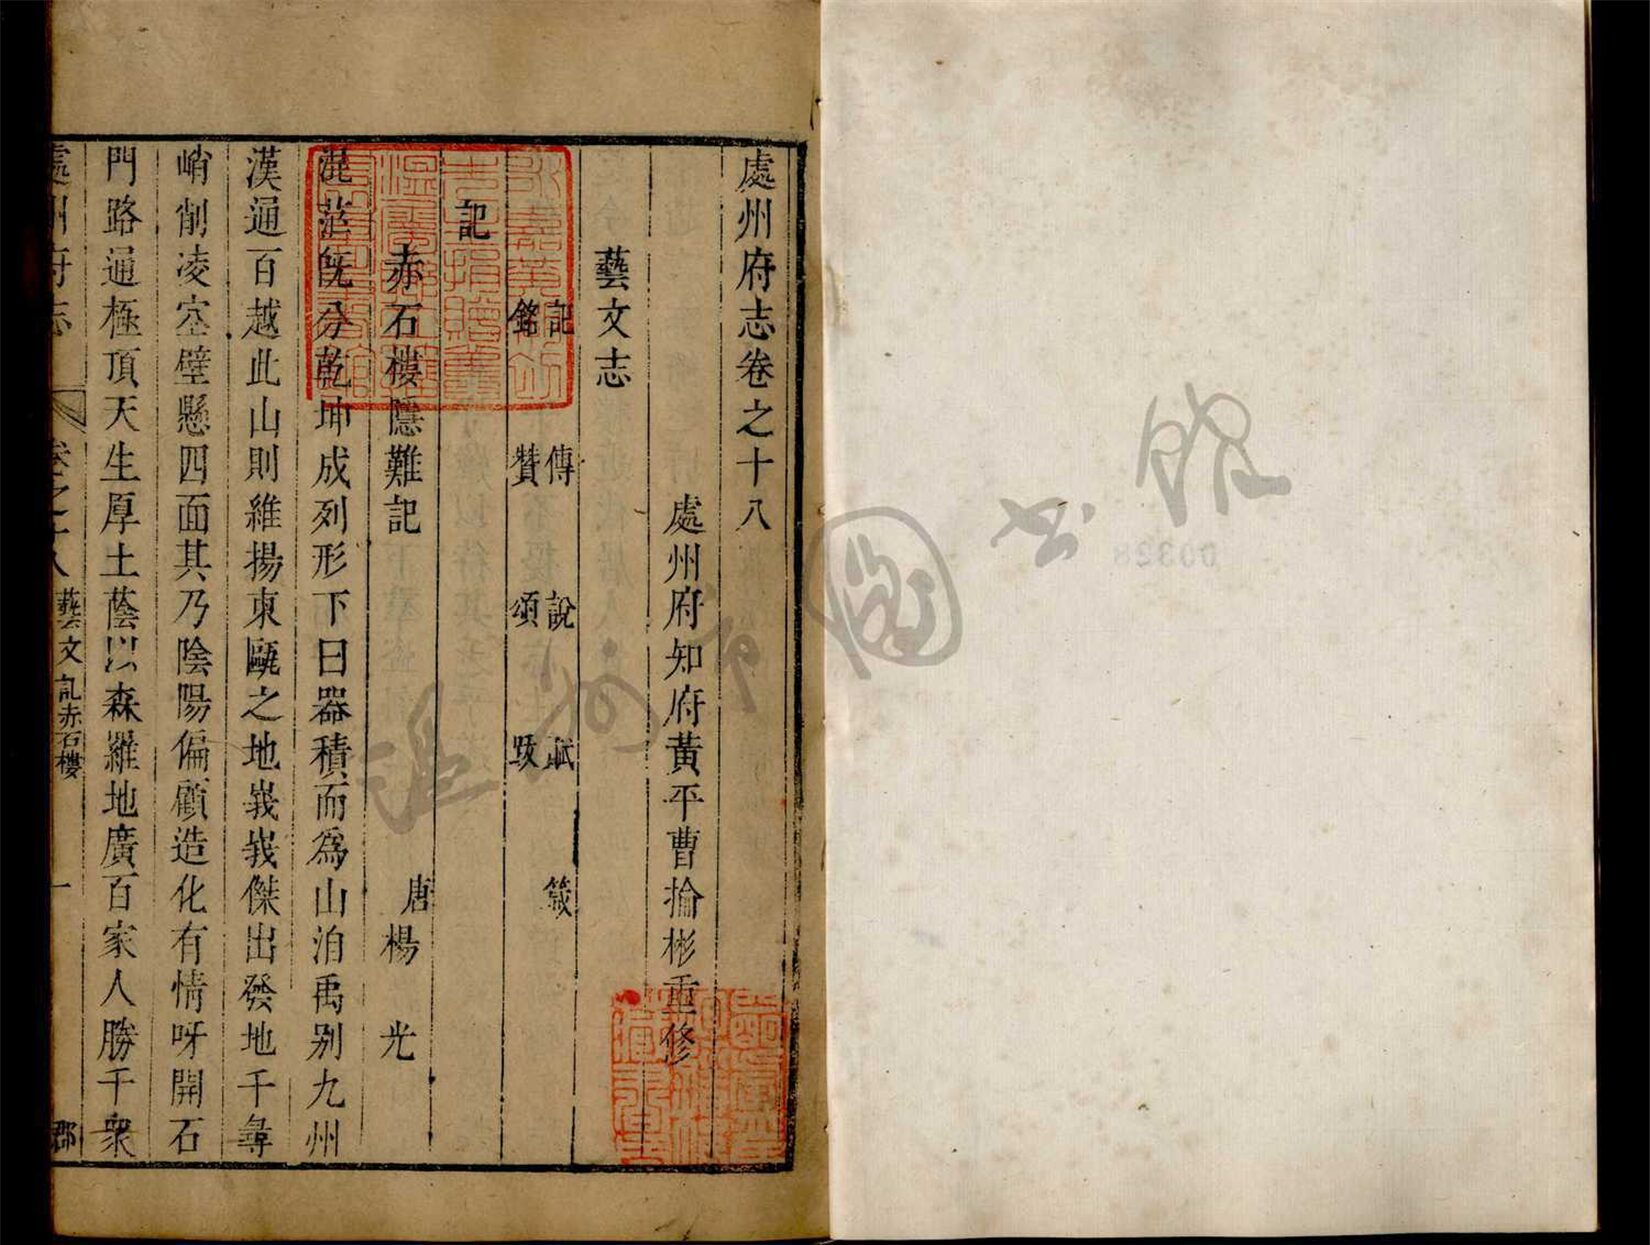 處州府志卷之十八
處州府知府黃平曹掄彬重修
藝文志
記 傳 說 賦 箴
銘 贊 頌 跋
記
赤石樓隱難記 唐 楊光
混茫既分乾坤成列形下曰器積而為山泊禹别九州
漢通百越此山則維揚東甌之地峩峩傑出發地千尋
峭削凌空壁懸四面其乃陰陽偏顧造化有情呀開石
門路通極頂天生厚土蔭以森羅地廣百家人勝千衆
處州府志 卷之十八 藝文 記赤石樓 一 郡
溫州市圖書館
00328